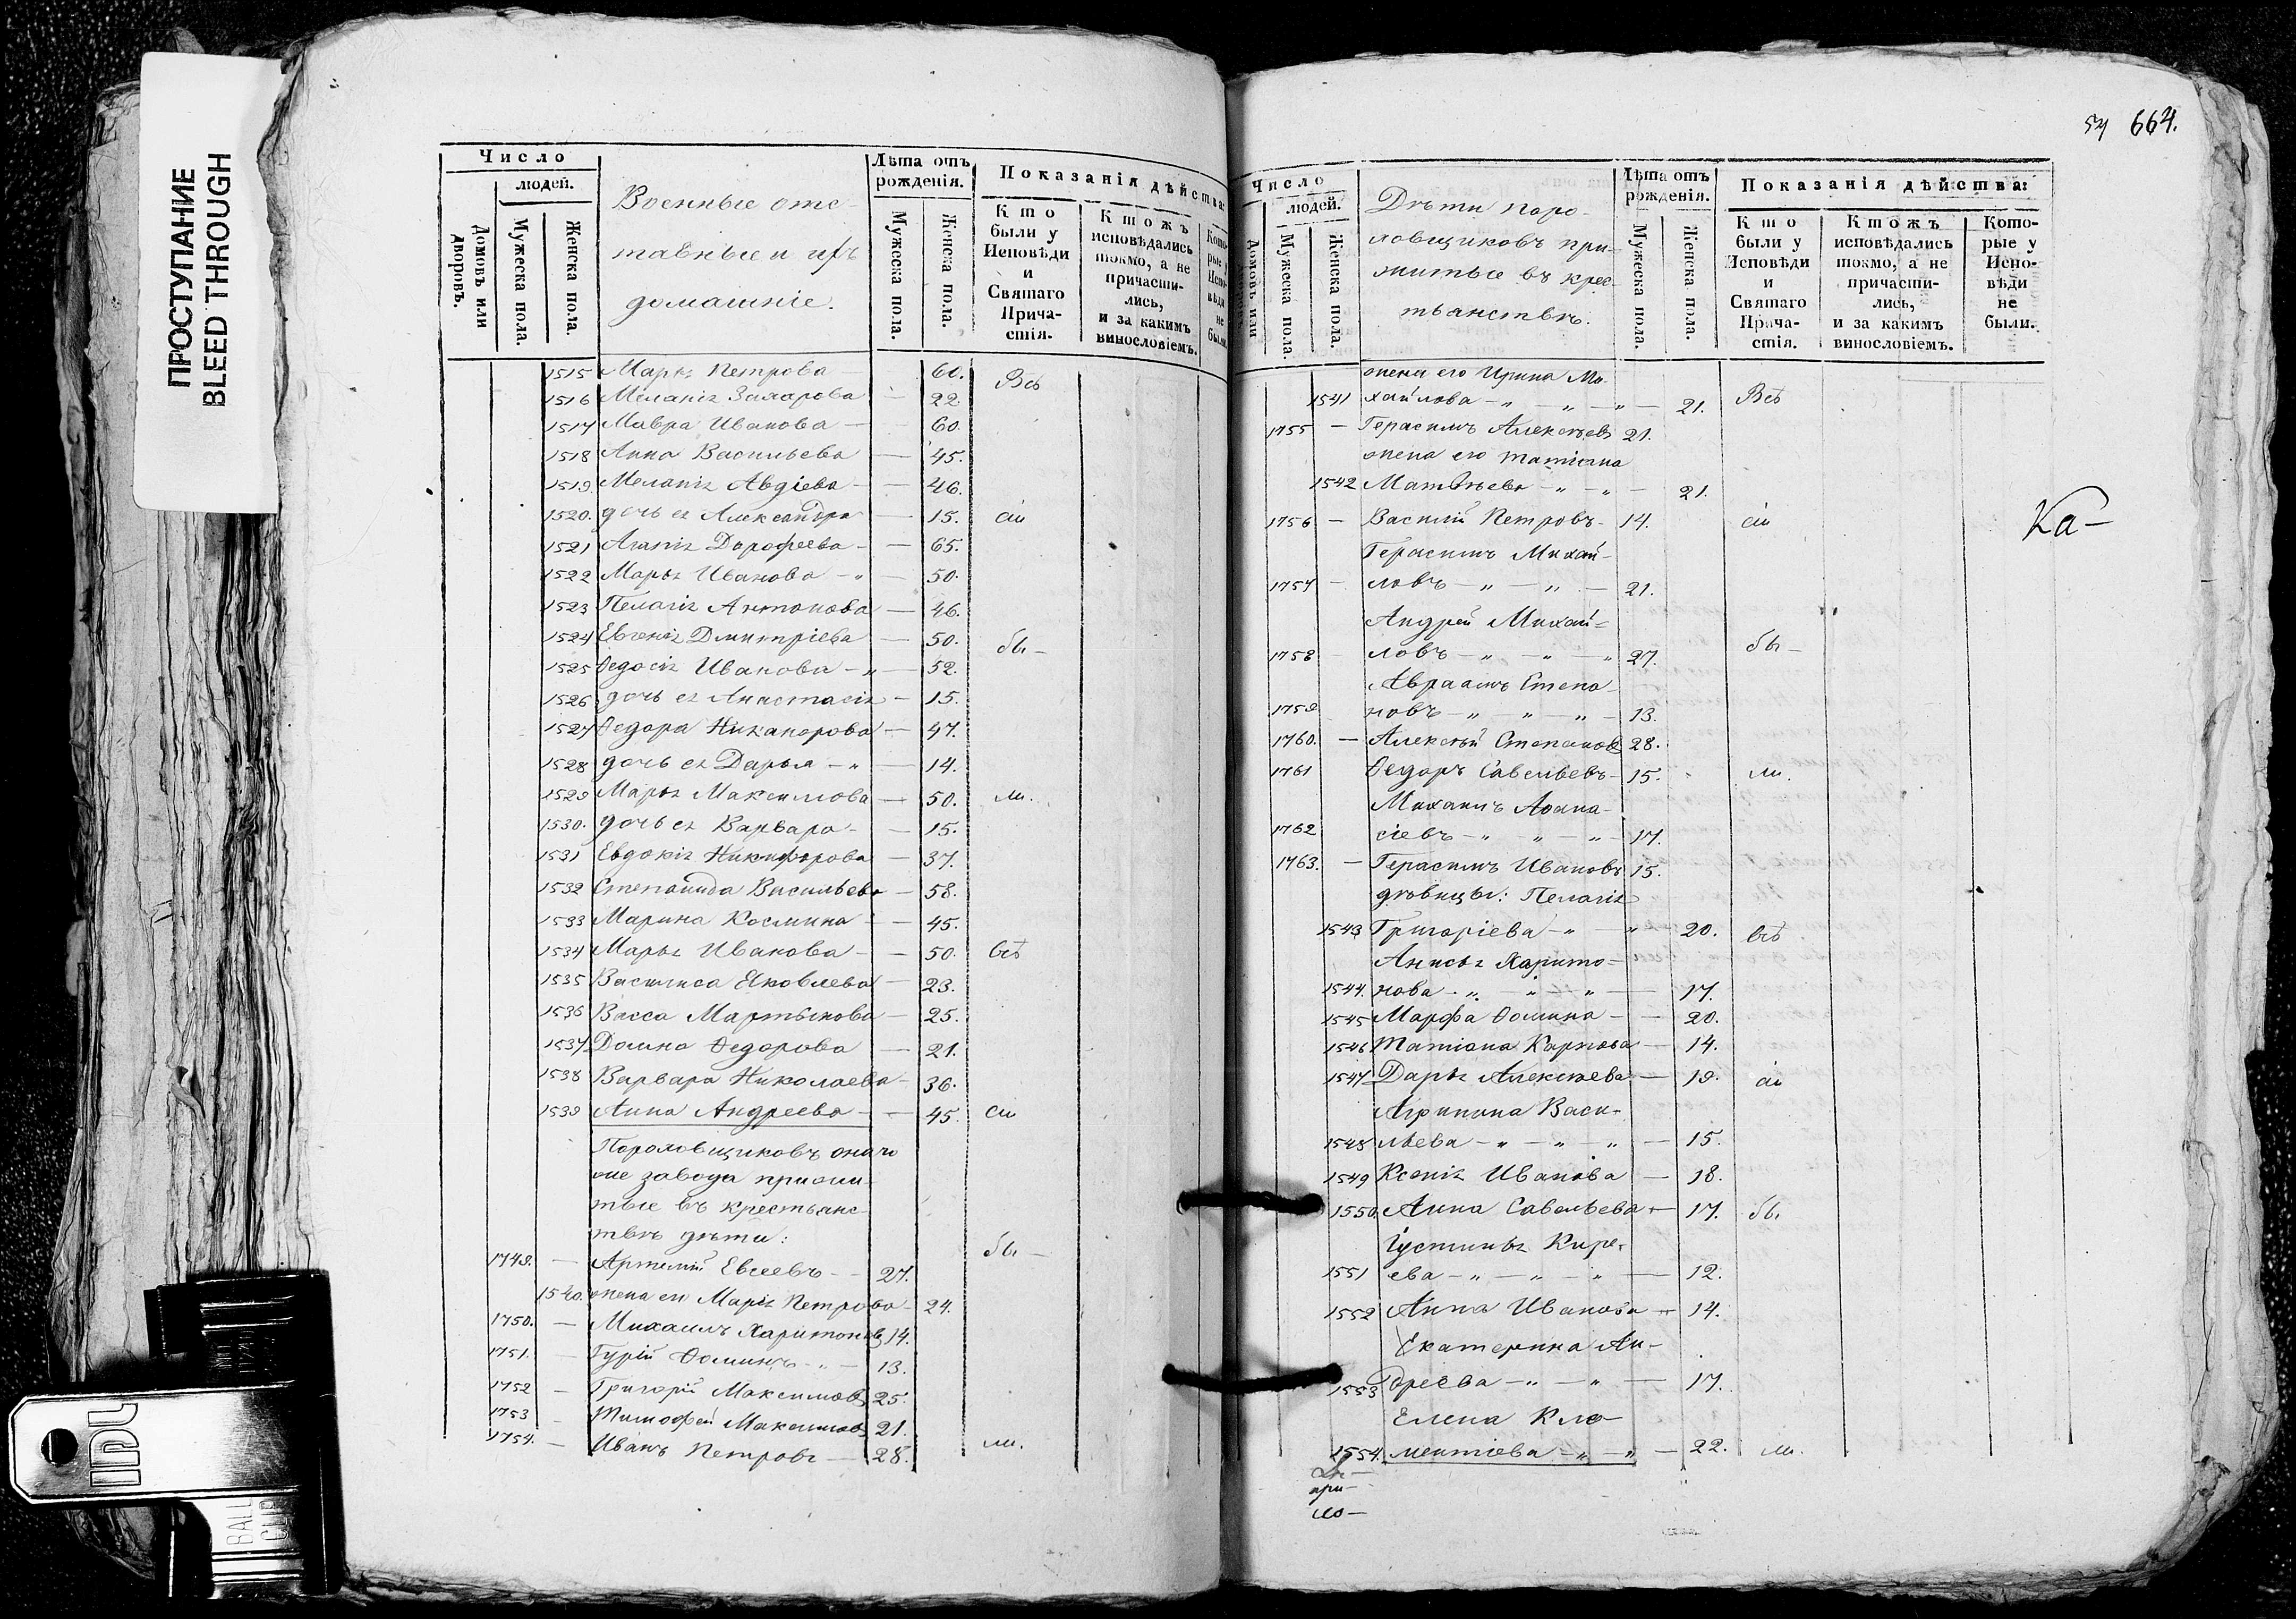 ПРОСТУПАНИЕ
BLEED THROUGH
Число
людей.
Домовъ или дворовъ.
Мужеска пола.
Женска пола.
Военные отс-
тавные и ихъ
домашніе.
Лѣта отъ рожденія.
Мужеска пола.
Женска пола.
Показанія дѣйства:
Кто были у Исповѣди и Святаго Прича-стія.
Ктожъ исповѣдались токмо, а не причасти-лись, и за какимъ винословіемъ.
Кото-рые у Испо-вѣди не были.
1515 Марья Петрова — 60. Всѣ
1516 Меланія Захарова — 22.
1517 Мавра Иванова — 60.
1518 Анна Васильева — 45.
1519. Меланія Авдіева — 46.
1520. дочь ея Александра — 15. сіи
1521 Агапія Дорофеева — 65.
1522 Марья Иванова — „ — 50.
1523 Пелагія Антонова — 46.
1524 Евгенія Дмитріева — 50. бы —
1525 Ѳедосія Иванова — „ — 52.
1526 дочь ея Анастасія — 15.
1527 Ѳедора Никанорова — 47.
1528 дочь ея Дарья — „ — 14.
1529 Марья Максимова — 50. ли.
1530. дочь ея Варвара — 15.
1531 Евдокія Никифорова — 37.
1532 Степанида Васильева — 58.
1533 Марина Космина — 45.
1534 Марья Иванова — 50. всѣ
1535 Василиса Яковлева — 23.
1536 Васса Мартынова — 25.
1537 Домна Ѳедорова — 21.
1538 Варвара Николаева — 36.
1539 Анна Андреева — 45. сіи
Пороховщиковъ онаго
же завода прижи-
тые въ крестьянс-
твѣ дѣти:
1749. — Артемій Евсеевъ — 27. бы —
1540. жена его Марія Петрова — 24.
1750. — Михаилъ Харитоновъ 14.
1751. — Гурій Ѳоминъ — „ — 13.
1752 — Григорій Максимовъ 25.
1753 — Тимофей Максимовъ 21.
1754. — Иванъ Петровъ — 28. ли.
664.
Число
людей.
Домовъ или
Мужеска пола.
Женска пола.
Дѣти поро-
ховщиковъ при-
житые въ крес-
тьянствѣ.
Лѣта отъ рожденія.
Мужеска пола.
Женска пола.
Показанія дѣйства:
Кто были у Исповѣди и Святаго Прича-стія.
Ктожъ исповѣдались токмо, а не причасти-лись, и за какимъ винословіемъ.
Кото-рые у Испо-вѣди не были.
жена его Ирина Ми-
1541 хайлова — „ — „ — „ — 21. Всѣ
1755 — Герасимъ Алексѣевъ 21.
жена его Татіана
1542 Матвѣева — „ — „ — 21.
1756 — Василій Петровъ — 14. сіи
Ка —
Герасимъ Михай-
1757 — ловъ — „ — „ — 21.
Андрей Михай-
1758 — ловъ — „ — „ — „ 27. бы —
Авраамъ Степа-
1759 новъ — „ — „ — „ — 13.
1760. — Алексѣй Степановъ 28.
1761 Ѳедоръ Савельевъ — 15. ли.
Михаилъ Аѳана-
1762 сіевъ — „ „ — „ — 17.
1763. — Герасимъ Ивановъ 15.
дѣвицы: Пелагія
1543 Григоріева — „ — „ — 20. всѣ
Анисья Харито-
1544. нова — „ — „ — „ — 17.
1545 Марфа Ѳомина — 20.
1546 Татіана Карпова — 14.
1547 Дарья Алексѣева — 19. сіи
Агрипина Васи-
1548 льева — „ — „ — „ — 15.
1549 Ксенія Иванова — 18.
1550. Анна Савельева — 17. бы
Іустинья Кире-
1551 ева — „ — „ — „ — 12.
1552 Анна Иванова — 14.
Екатерина Ан-
1553 дреева — „ — „ — 17.
Елена Кле-
1554. ментіева — „ — „ — 22. ли.
при —
ло —
BALL
CLIP